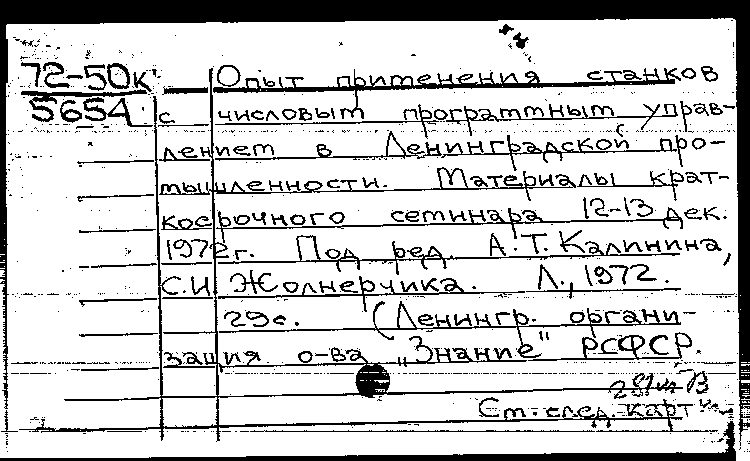 72-50к
5654
Опыт применения станков
с числовым программным управ-
лением в Ленинградской про-
мышленности. Материалы крат-
косрочного семинара 12-13 дек.
1972г. Под ред. А.Т. Калинина,
С.И. Жолнерчика. Л., 1972.
29с. (Ленингр. органи-
зация о-ва „Знание" РСФСР.
См. след. карт